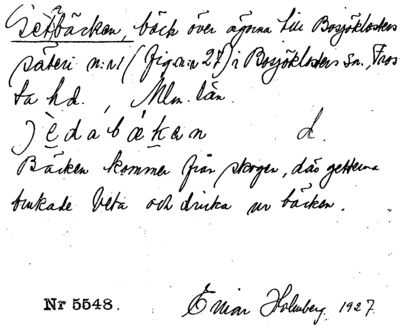 Getbäcken, bäck över ägorna till Bosjöklosters
säteri n:r 1 (fig. a:n 27) i Bosjöklosters sn., Fros
ta hd., Mlm. län.
jèdabákan d.
Bäcken kommer från skogen, där getterna
brukade beta och dricka ur bäcken.
Nr 5548. Einar Holmberg 1927.